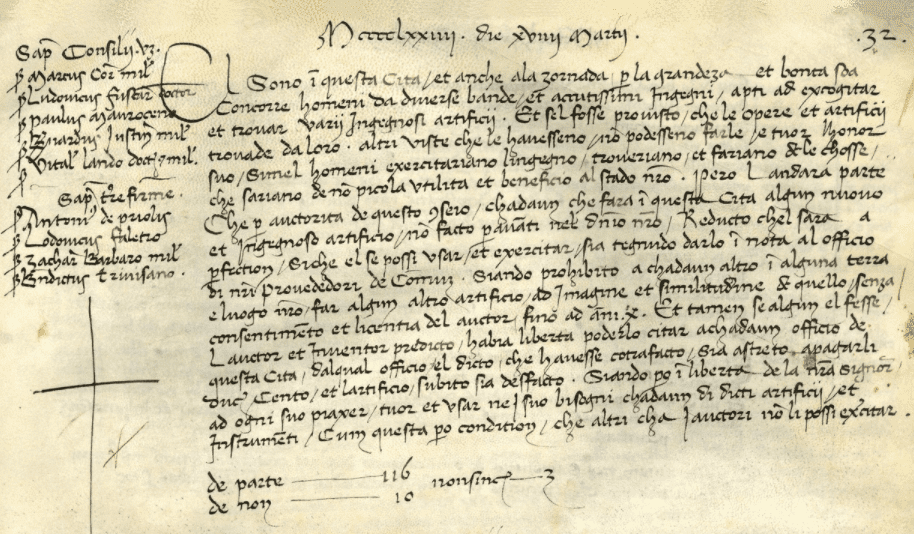 MccccLxxiiij. die xviiij Martij.
.32.
Sapient Consilij. vz.
Marcus Cor mil
Ludovicus fuscar doctor
Paulus Mauroceno
Bnardus Justin mil
Vital lando doct et mil.
Sap tre firme.
Antoni de priolis
Lodovicus faletro
Zachar Barbaro mil
Bndictus trivisano.
EL Sono i questa Cita, et anche ala zornada p la grandeza et bonta soa
Concorre homeni da diverse bande, et accutissimi Ingegni, apti ad excogitar
et trovar varij Ingegnosi artificij. Et sel fosse provisto, che le opere et artificij
trovade da loro. altri viste che le havesseno, no podesseno farle, e tuor lhonor
suo, Simel homeni exercitariano lingegno, troveriano, et fariano de le chosse,
che sariano de no picola utilita et beneficio al stado nro. Pero Landara parte
Che p auctorita de questo 9seio, chadaun che fara i questa Cita algun nuovo
et Ingegnoso artificio, no facto p avati nel dnio nro, Reducto chel sara a
pfection, Siche el se possi usar, et exercitar, sia tegnudo darlo i nota al officio
di nri Provededori de Comun. Siando prohibito a chadaun altro i alguna terra
e luogo nro, far algun altro artificio, ad imagine et similitudine de quello, senza
consentimeto et licentia del auctor, fino ad ani .X. Et tamen se algun el fesse,
Lauctor et Inventor predicto, habia liberta poderlo citar a chadaun officio de
questa Cita, dalqual officio, el dicto, che havesse cotrafacto, Sia astreto, apagarli
duc Cento, et lartificio, subito sia desfacto. Siando po i liberta de la nra Signor
ad ogni suo piaxer, tuor et usar nei suo bisogni chadaun di dicti artificij, et
Instrumeti, Cum questa po condition, che altri cha i auctori no li possi exercitar.
de parte 116
de non 10 nonsinc 3